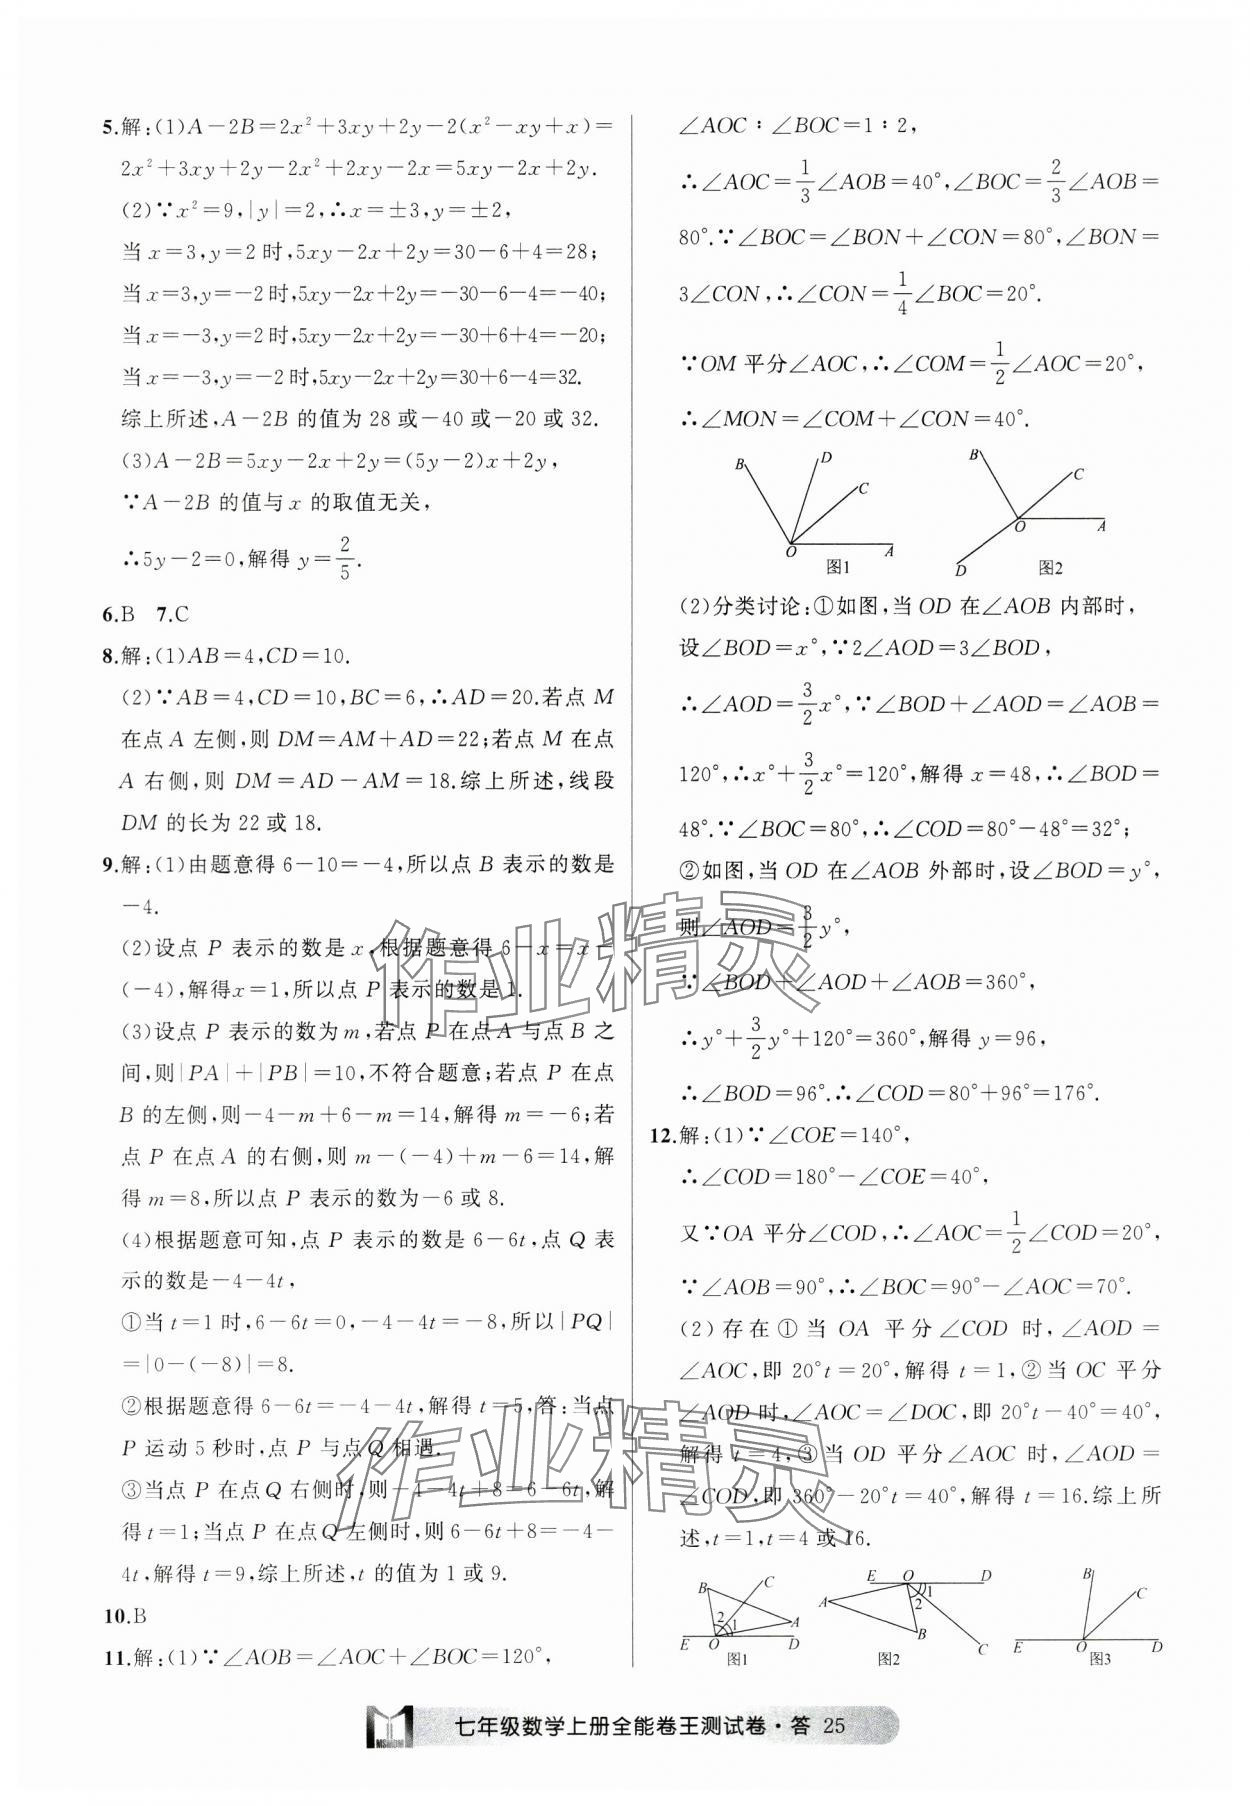 5.解:(1)A-2B=2x²+3xy+2y-2(x²-xy+x)=
2x²+3xy+2y-2x²+2xy-2x=5xy-2x+2y.
(2)∵x²=9,|y|=2,∴x=±3,y=±2,
当x=3,y=2时,5xy-2x+2y=30-6+4=28;
当x=3,y=-2时,5xy-2x+2y=-30-6-4=-40;
当x=-3,y=2时,5xy-2x+2y=-30+6+4=-20;
当x=-3,y=-2时,5xy-2x+2y=30+6-4=32.
综上所述,A-2B的值为28或-40或-20或32.
(3)A-2B=5xy-2x+2y=(5y-2)x+2y,
∵A-2B的值与x的取值无关,
∴5y-2=0,解得y=2/5.
6.B 7.C
8.解:(1)AB=4,CD=10.
(2)∵AB=4,CD=10,BC=6,∴AD=20.若点M
在点A左侧,则DM=AM+AD=22;若点M在点
A右侧,则DM=AD-AM=18.综上所述,线段
DM的长为22或18.
9.解:(1)由题意得6-10=-4,所以点B表示的数是
-4.
(2)设点P表示的数是x,根据题意得6-x=x-
(-4),解得x=1,所以点P表示的数是1.
(3)设点P表示的数为m,若点P在点A与点B之
间,则|PA|+|PB|=10,不符合题意;若点P在点
B的左侧,则-4-m+6-m=14,解得m=-6;若
点P在点A的右侧,则m-(-4)+m-6=14,解
得m=8,所以点P表示的数为-6或8.
(4)根据题意可知,点P表示的数是6-6t,点Q表
示的数是-4-4t,
①当t=1时,6-6t=0,-4-4t=-8,所以|PQ|
=|0-(-8)|=8.
②根据题意得6-6t=-4-4t,解得t=5,答:当点
P运动5秒时,点P与点Q相遇.
③当点P在点Q右侧时,则-4-4t+8=6-6t,解
得t=1;当点P在点Q左侧时,则6-6t+8=-4-
4t,解得t=9,综上所述,t的值为1或9.
10.B
11.解:(1)∵∠AOB=∠AOC+∠BOC=120°,
∠AOC∶∠BOC=1∶2,
∴∠AOC=1/3∠AOB=40°,∠BOC=2/3∠AOB=
80°.∵∠BOC=∠BON+∠CON=80°,∠BON=
3∠CON,∴∠CON=1/4∠BOC=20°.
∵OM平分∠AOC,∴∠COM=1/2∠AOC=20°,
∴∠MON=∠COM+∠CON=40°.
B D C O A 图1
B C O A D 图2
(2)分类讨论:①如图,当OD在∠AOB内部时,
设∠BOD=x°,∵2∠AOD=3∠BOD,
∴∠AOD=3/2x°,∵∠BOD+∠AOD=∠AOB=
120°,∴x°+3/2x°=120°,解得x=48,∴∠BOD=
48°.∵∠BOC=80°,∴∠COD=80°-48°=32°;
②如图,当OD在∠AOB外部时,设∠BOD=y°,
则∠AOD=3/2y°,
∵∠BOD+∠AOD+∠AOB=360°,
∴y°+3/2y°+120°=360°,解得y=96,
∴∠BOD=96°.∴∠COD=80°+96°=176°.
12.解:(1)∵∠COE=140°,
∴∠COD=180°-∠COE=40°,
又∵OA平分∠COD,∴∠AOC=1/2∠COD=20°,
∵∠AOB=90°,∴∠BOC=90°-∠AOC=70°.
(2)存在①当OA平分∠COD时,∠AOD=
∠AOC,即20°t=20°,解得t=1,②当OC平分
∠AOD时,∠AOC=∠DOC,即20°t-40°=40°,
解得t=4,③当OD平分∠AOC时,∠AOD=
∠COD,即360°-20°t=40°,解得t=16.综上所
述,t=1,t=4或16.
B C A 2 1 E O D 图1
E O D 1 2 A B C 图2
B C E O D 图3
七年级数学上册全能卷王测试卷·答 25
作业精灵
作业精灵